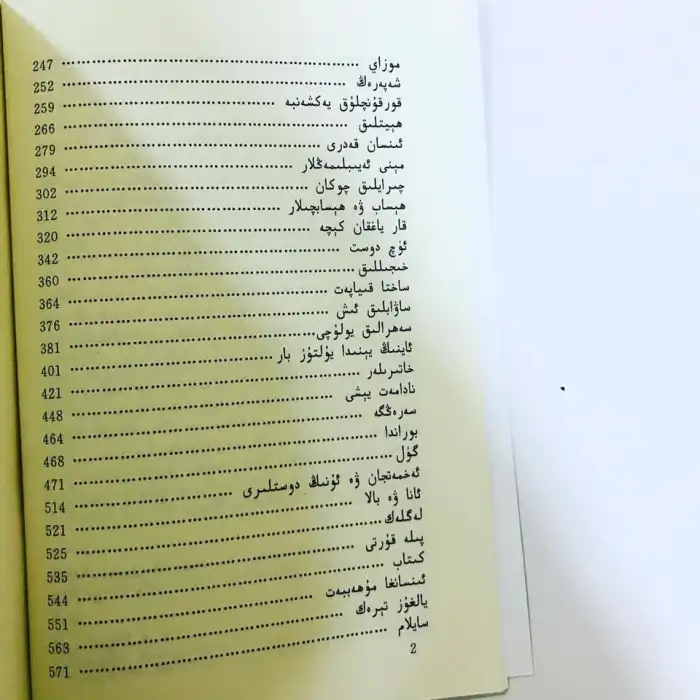 موزاي 247
شەپەرەڭ 252
قورقۇنچلۇق يەكشەنبە 259
ھېيتلىق 266
ئىنسان قەدرى 279
مېنى ئەيىبلىمەڭلار 294
چىرايلىق چوكان 302
ھېساب ۋە ھېسابچىلار 312
قار ياغقان كېچە 320
ئۈچ دوست 342
خىجىللىق 360
ساختا قىياپەت 364
ساۋابلىق ئىش 376
سەھرالىق يولۇچى 381
ئاينىڭ يېنىدا يۇلتۇز بار 401
خاتىرىلەر 421
نادامەت يېشى 448
سەرەڭگە 464
بوراندا 468
گۈل 471
ئەخمەتجان ۋە ئۇنىڭ دوستلىرى 514
ئانا ۋە بالا 521
لەگلەك 525
پىلە قۇرتى 535
كىتاب 544
ئىنسانغا مۇھەببەت 551
يالغۇز تېرەك 563
سايلام 571
2